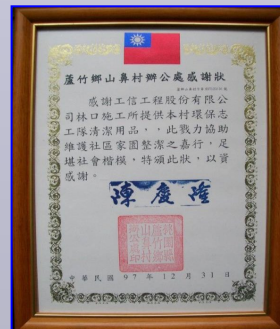 蘆竹鄉山鼻村辦公處感謝狀
感謝工信工程股份有限公
司林口施工所提供本村環保志
工隊清潔用品，，此戮力協助
維護社區家園整潔之嘉行，足
堪社會楷模，特頒此狀，以資
感謝。
陳慶隆
中華民國 97 年 12 月 31 日